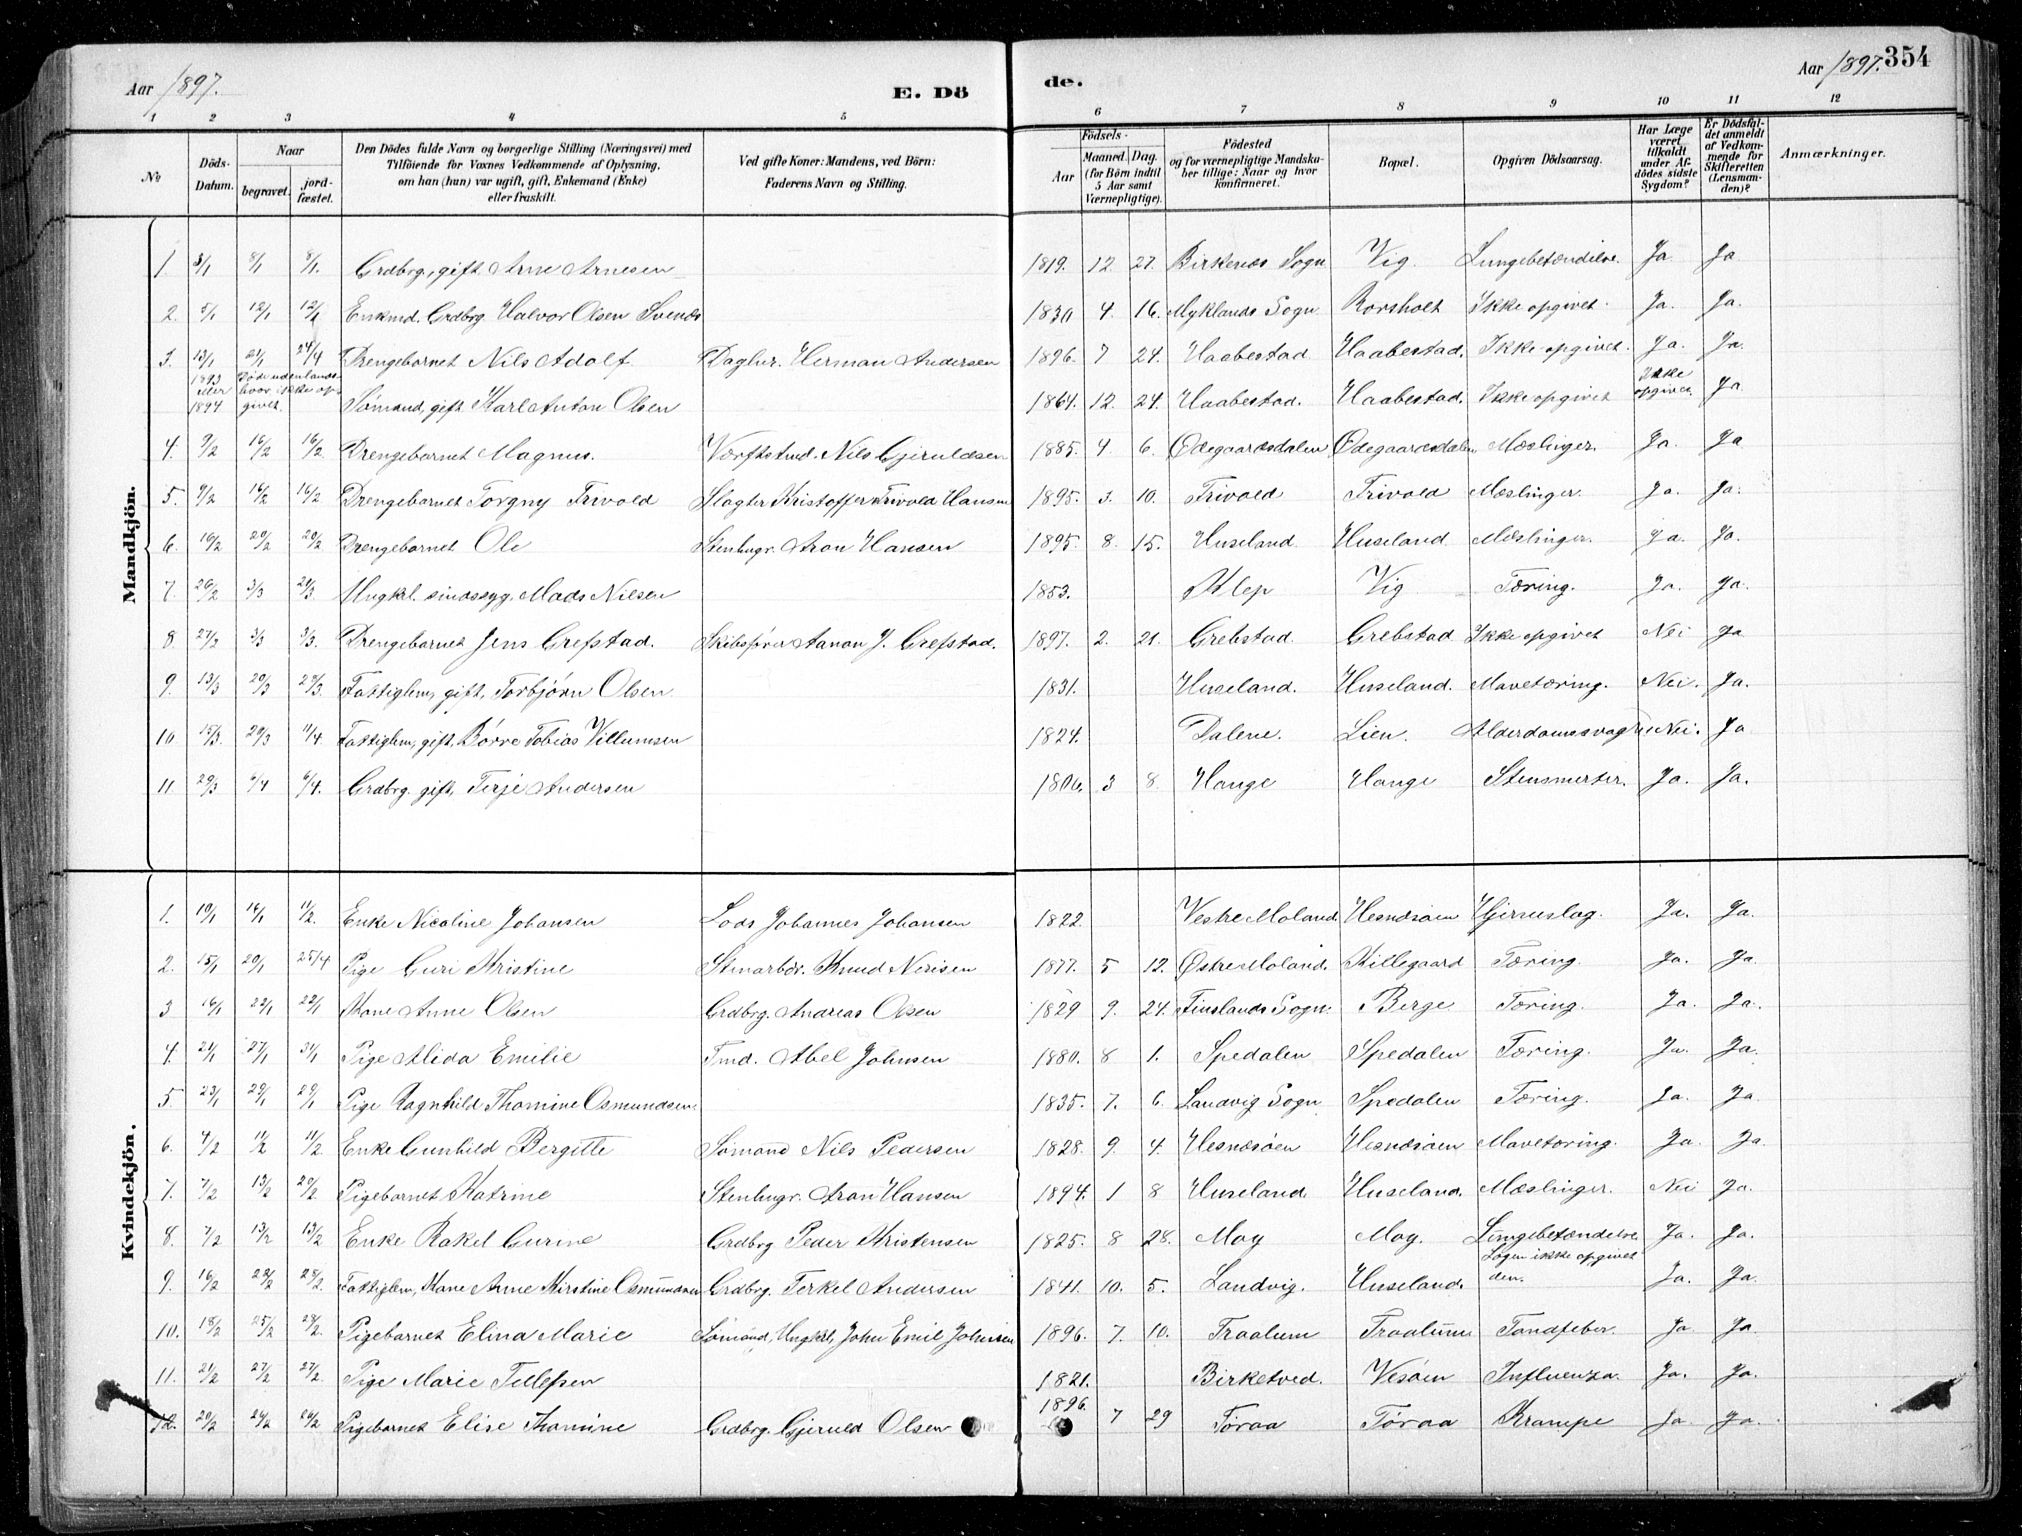 Aar 1897.
E. Dö
de.
Aar 1897. 354
1 2 3 4 5 6 7 8 9 10 11 12
No
Döds-Datum.
Naar
begravet. jordfæstet.
Den Dödes fulde Navn og borgerlige Stilling (Næringsvei) med
Tilföiende for Voxnes Vedkommende af Oplysning,
om han (hun) var ugift, gift, Enkemand (Enke)
eller fraskilt.
Ved gifte Koner: Mandens, ved Börn:
Faderens Navn og Stilling.
Födsels-
Aar
Maaned. Dag.
(for Börn indtil
5 Aar samt
Værnepligtige).
Födested
og for værnepligtige Mandska-
ber tillige: Naar og hvor
konfirmeret.
Bopæl.
Opgiven Dödsaarsag.
Har Læge
været
tilkaldt
under Af-
dödes sidste
Sygdom?
Er Dödsfal-
det anmeldt
af Vedkom-
mende for
Skifteretten
(Lensman-
den)?
Anmærkninger.
Mandkjön.
1. 3/1 8/1 8/1. Grdbrg., gift Arne Arnesen 1819. 12 27. Birkenæs Sogn Vig. Lungebetændelse. Ja Ja
2. 5/1 12/1 12/1 Enkmd. Grdbrg. Halvor Olsen Svends 1830 4. 16. Myklands Sogn Rorsholt Ikke opgivet. Ja. Ja.
3. 13/1 21/1 24/4 Drengebarnet Nils Adolf. Daglnr. Herman Andersen 1896. 7 24. Haabestad Haabestad. Ikke opgivet. Ja. Ja.
1893 eller 1894 Död udenlands hvor ikke opgivet. Sömand, gift Karl Anton Olsen 1864. 12. 24. Haabestad. Haabestad. Ikke opgivet Ikke opgivet Ja
4. 9/2 16/2 16/2. Drengebarnet Magnus. Værftstmd. Nils Gjeruldsen 1885. 4 6. Ødegaardsdalen Ødegaardsdalen Mæslinger. Ja. Ja
5. 9/2 16/2 16/2 Drengebarnet Torgny Trivold Slagter Kristoffer Trivold Hansen 1895. 3. 10. Trivold Trivold Mæslinger. Ja. Ja.
6. 16/2 20/2 20/2. Drengebarnet Ole Stenhugr. Aron Hansen 1895. 8. 15. Huseland. Huseland Mæslinger. Ja. Ja.
7. 26/2 3/3 21/3. Ungkrl. sindssyg, Mads Nilsen 1853. Klep Vig Tæring. Ja. Ja.
8. 27/2 3/3 3/3. Drengebarnet Jens Grefstad. Skibsförer Aanon J. Grefstad. 1897. 2. 21. Grebstad. Grebstad Ikke opgivet Nei Ja
9. 13/3 20/3 29/3. Fattiglm, gift, Torbjörn Olsen 1831. Huseland. Huseland. Mavetæring. Nei. Ja.
10 15/3. 20/3 11/4. Fattiglm, gift, Börre Tobias Villumsen 1824. Dalene. Lien. Alderdomssvaghe Nei. Ja
11. 29/3 6/4 6/4. Grdbrg. gift, Terje Andersen 1806. 3 8. Hauge Hauge Stensmerter. Ja. Ja.
Kvindekjön.
1. 10/1 16/1 11/2. Enke Nicoline Johansen Lods Johannes Johansen 1822. Vestre Moland. Hesnæsöen Hjerneslag. Ja. Ja.
2. 15/1 20/1 25/4 Pige Guri Kristine Stenarbdr. Knud Nerisen 1877. 5 12. Østre Moland. Killegaard Tæring. Ja. Ja.
3 16/1 22/1 22/1 Kone Anne Olsen Grdbrg. Andreas Olsen 1829 9. 24. Finslands Sogn. Berge Tæring. Ja. Ja.
4. 21/1 27/1 31/1 Pige Alida Emilie Tmd. Abel Johnsen 1880. 8 1. Spedalen Spedalen Tæring. Ja. Ja.
5. 23/1 29/1 29/1 Pige Ragnhild Thomine Osmundsen. 1835. 7. 6. Landvig Sogn Spedalen Tæring. Ja. Ja.
6. 4/2 11/2 11/2. Enke Gunhild Bergitte Sömand Nils Pedersen 1828. 9. 4. Hesnæsöen Hesnæsöen Mavetæring. Ja. Ja.
7. 7/2 13/2 20/2 Pigebarnet Katrine Stenhugr. Aron Hansen 1894. 1 8 Huseland. Huseland. Mæslinger. Nei Ja.
8. 7/2 13/2 13/2 Enke Rakel Gurine Grdbrg Peder Kristensen 1825. 8 28. Moy Moy. Lungebetændelse Ja. Ja.
9. 16/2 22/2 28/2. Fattiglm, Kone Anne Kirstine Osmundsen Grdbrg. Terkel Andersen 1841. 10. 5. Landvig. Huseland. Lægen ikke opgivet den. Ja. Ja.
10. 18/2 25/2 28/2. Pigebarnet Elina Marie Sömand, Ungkrl, John Emil Johnsen 1896. 7. 10. Traalum Traalum Tandfeber. Ja Ja.
11. 21/2 27/2 27/2. Pige Marie Tellefsen 1821. Birketved. Vesöen Influenza. Ja. Ja.
12. 20/2 24/2 24/2 Pigebarnet Elise Thomine Grdbrg. Gjeruld Olsen 1896. 7 29 Töraa Töraa Krampe Ja. Ja.